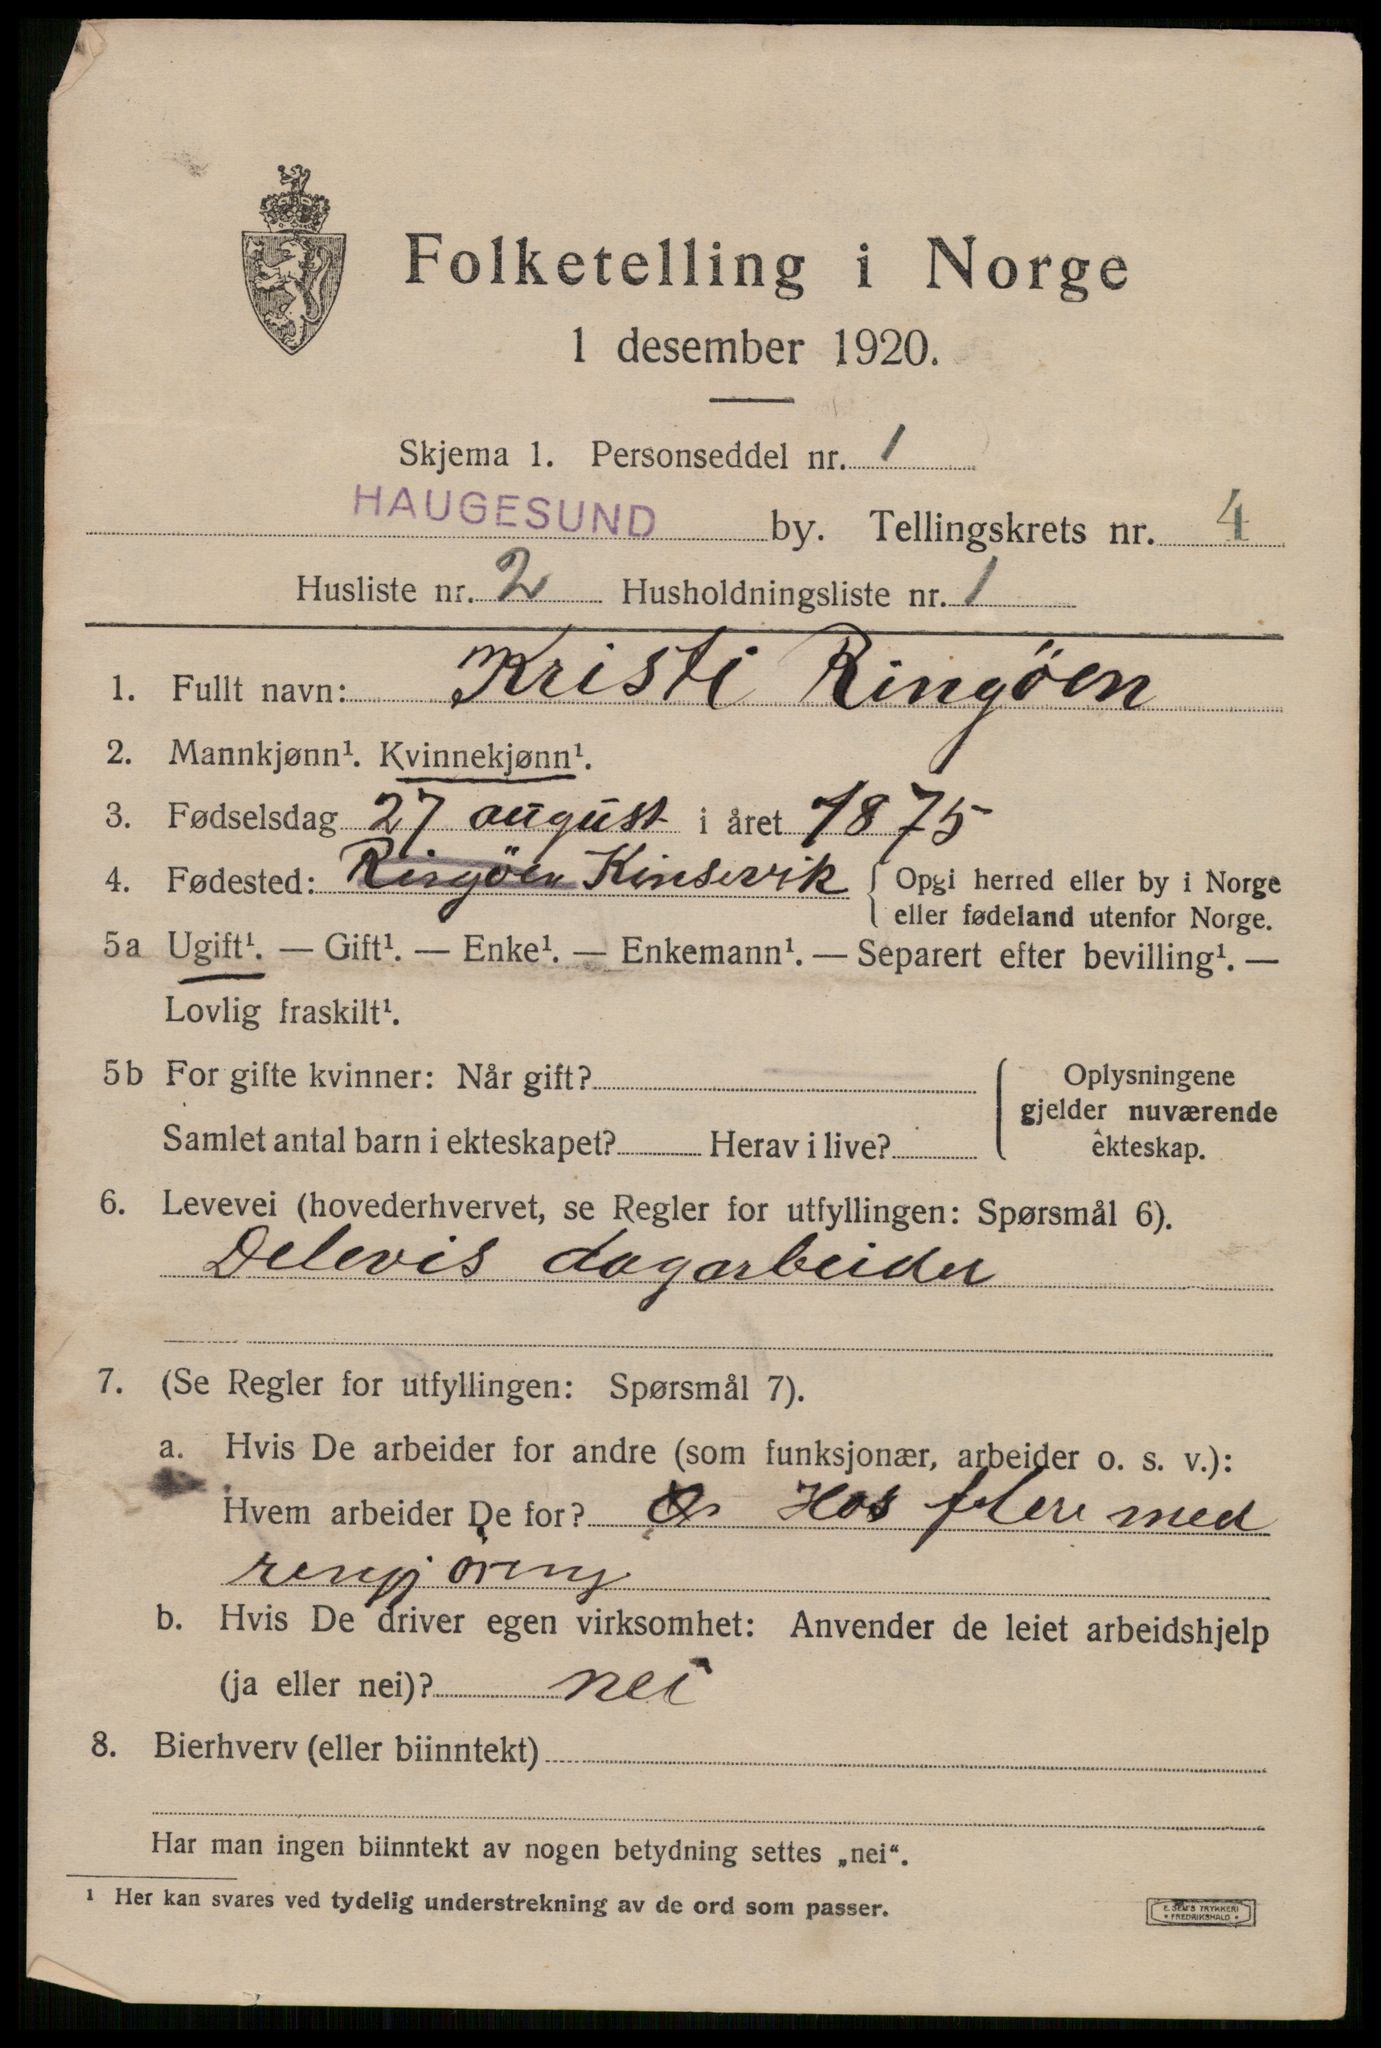 Folketelling i Norge
1 desember 1920.
Skjema 1. Personseddel nr. 1
HAUGESUND by. Tellingskrets nr. 4
Husliste nr. 2 Husholdningsliste nr. 1
1. Fullt navn: Kristi Ringöen
2. Mannkjønn¹. Kvinnekjønn¹.
3. Fødselsdag 27 august i året 1875
4. Fødested: Ringöen Kinservik { Opgi herred eller by i Norge
eller fødeland utenfor Norge.
5a Ugift¹. — Gift¹. — Enke¹. — Enkemann¹. — Separert efter bevilling¹. —
Lovlig fraskilt¹.
5b For gifte kvinner: Når gift? { Oplysningene
gjelder nuværende
Samlet antal barn i ekteskapet? Herav i live? ekteskap.
6. Levevei (hovederhvervet, se Regler for utfyllingen: Spørsmål 6).
Delevis dagarbeider
7. (Se Regler for utfyllingen: Spørsmål 7).
a. Hvis De arbeider for andre (som funksjonær, arbeider o. s. v.):
Hvem arbeider De for? Hos flere med
rengjöring
b. Hvis De driver egen virksomhet: Anvender de leiet arbeidshjelp
(ja eller nei)? nei
8. Bierhverv (eller biinntekt)
Har man ingen biinntekt av nogen betydning settes „nei“.
¹ Her kan svares ved tydelig understrekning av de ord som passer.
E. SEM'S TRYKKERI
• FREDRIKSHALD •